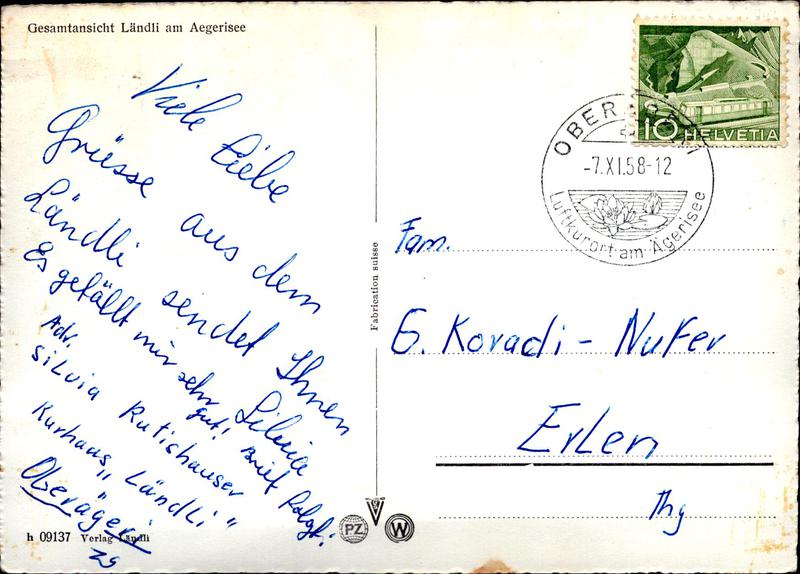 Gesamtansicht Ländli am Aegerisee
Viele liebe
Grüsse aus dem
Ländli sendet Ihnen
Silvia
Es gefällt mir sehr gut! Brief folgt!
Adr.
Silvia Rutishauser
Kurhaus „Ländli"
Oberägeri
ZG
h 09137 Verlag Ländli
Fabrication suisse
PZ
W
HELVETIA
10
OBERÄGERI
-7.XI.58-12
Luftkurort am Ägerisee
Fam.
G. Koradi-Nufer
Erlen
Thg